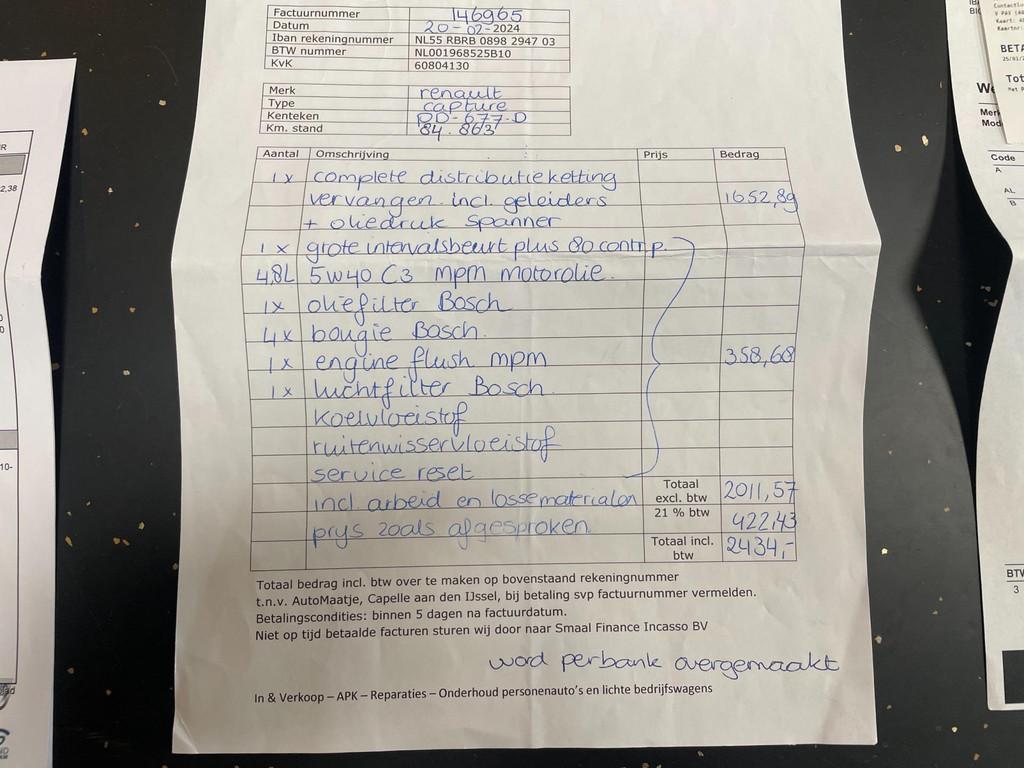 Factuurnummer 146965
Datum 20-02-2024
Iban rekeningnummer NL55 RBRB 0898 2947 03
BTW nummer NL001968525B10
KvK 60804130
Merk renault
Type capture
Kenteken RD-677-D
Km. stand 84.863
Aantal Omschrijving Prijs Bedrag
1x complete distributieketting
vervangen incl. geleiders 1652,89
+ oliedruk spanner
1x grote intervalsbeurt plus 80 contr.p.
4,8L 5W40 C3 mpm motorolie.
1x oliefilter Bosch
4x bougie Bosch.
1x engine flush mpm 358,68
1x luchtfilter Bosch.
koelvloeistof
ruitenwisservloeistof
service reset
incl. arbeid en losse materialen Totaal excl. btw 2011,57
prys zoals afgesproken 21 % btw 422,43
Totaal incl. btw 2434,-
Totaal bedrag incl. btw over te maken op bovenstaand rekeningnummer
t.n.v. AutoMaatje, Capelle aan den IJssel, bij betaling svp factuurnummer vermelden.
Betalingscondities: binnen 5 dagen na factuurdatum.
Niet op tijd betaalde facturen sturen wij door naar Smaal Finance Incasso BV
word perbank overgemaakt
In & Verkoop – APK – Reparaties – Onderhoud personenauto's en lichte bedrijfswagens
R
2,38
10-
BETA
Tot
Mer
Mod
Code
A
AL
B
BTW
3